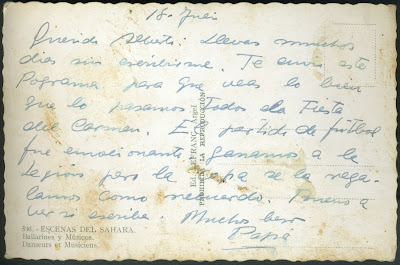 18-Julio
Querido Alberto: Llevas muchos
dias sin escribirme. Te envio este
Programa para que veas lo bien
que lo pasamos todos la Fiesta
del Carmen. El partido de futbol
fue emocionante, ganamos a la
Legión pero la copa se la rega-
lamos como recuerdo.
ver si escribes. Muchos besos
Papá
Ed. BELTRANC. Argel
PROHIBIDA LA REPRODUCCIÓN
ESCENAS DEL SAHARA.
Bailarines y Músicos.
Danseurs et Musiciens.